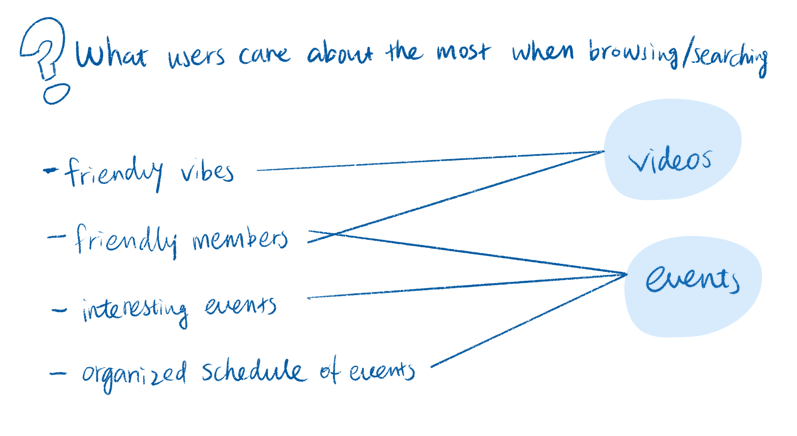 ? What users care about the most when browsing/searching
- friendly vibes
- friendly members
- interesting events
- organized schedule of events
videos
events